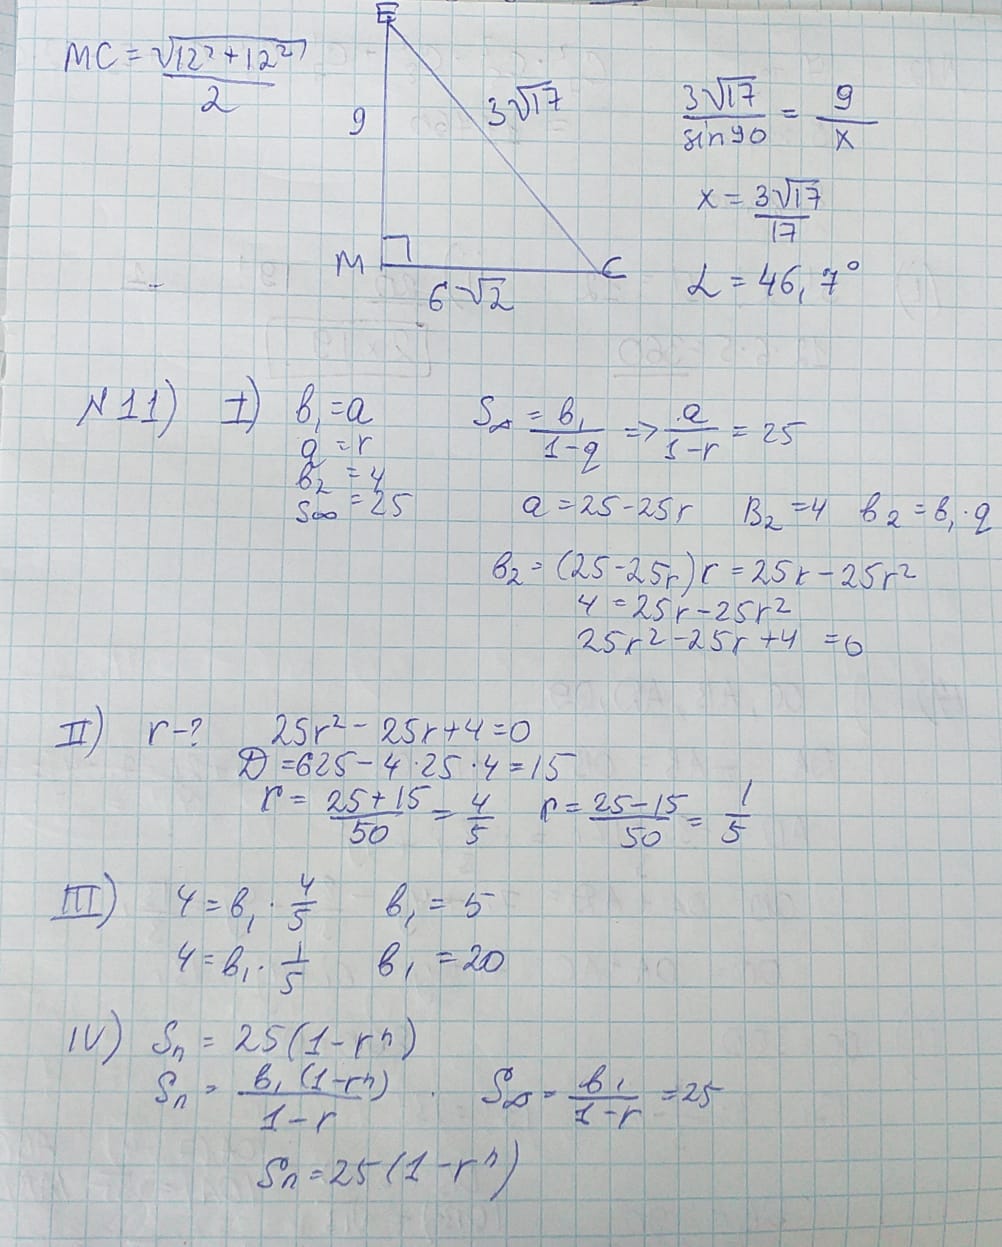 MC = √(12²+12²) / 2
E
9
3√17
M
C
6√2
3√17 / sin90 = 9 / x
x = 3√17 / 17
L = 46,7°
N11) I) b₁ = a
q = r
b₂ = 4
S∞ = 25
S∞ = b₁ / 1-q => a / 1-r = 25
a = 25-25r B₂ = 4 b₂ = b₁·q
b₂ = (25-25r)r = 25r-25r²
4 = 25r-25r²
25r²-25r+4 = 0
II) r-? 25r²-25r+4=0
D = 625-4·25·4 = 15
r = 25+15 / 50 = 4/5 r = 25-15 / 50 = 1/5
III) 4 = b₁ · 4/5 b₁ = 5
4 = b₁ · 1/5 b₁ = 20
IV) Sₙ = 25(1-rⁿ)
Sₙ = b₁(1-rⁿ) / 1-r . S∞ = b₁ / 1-r = 25
Sₙ = 25(1-rⁿ)